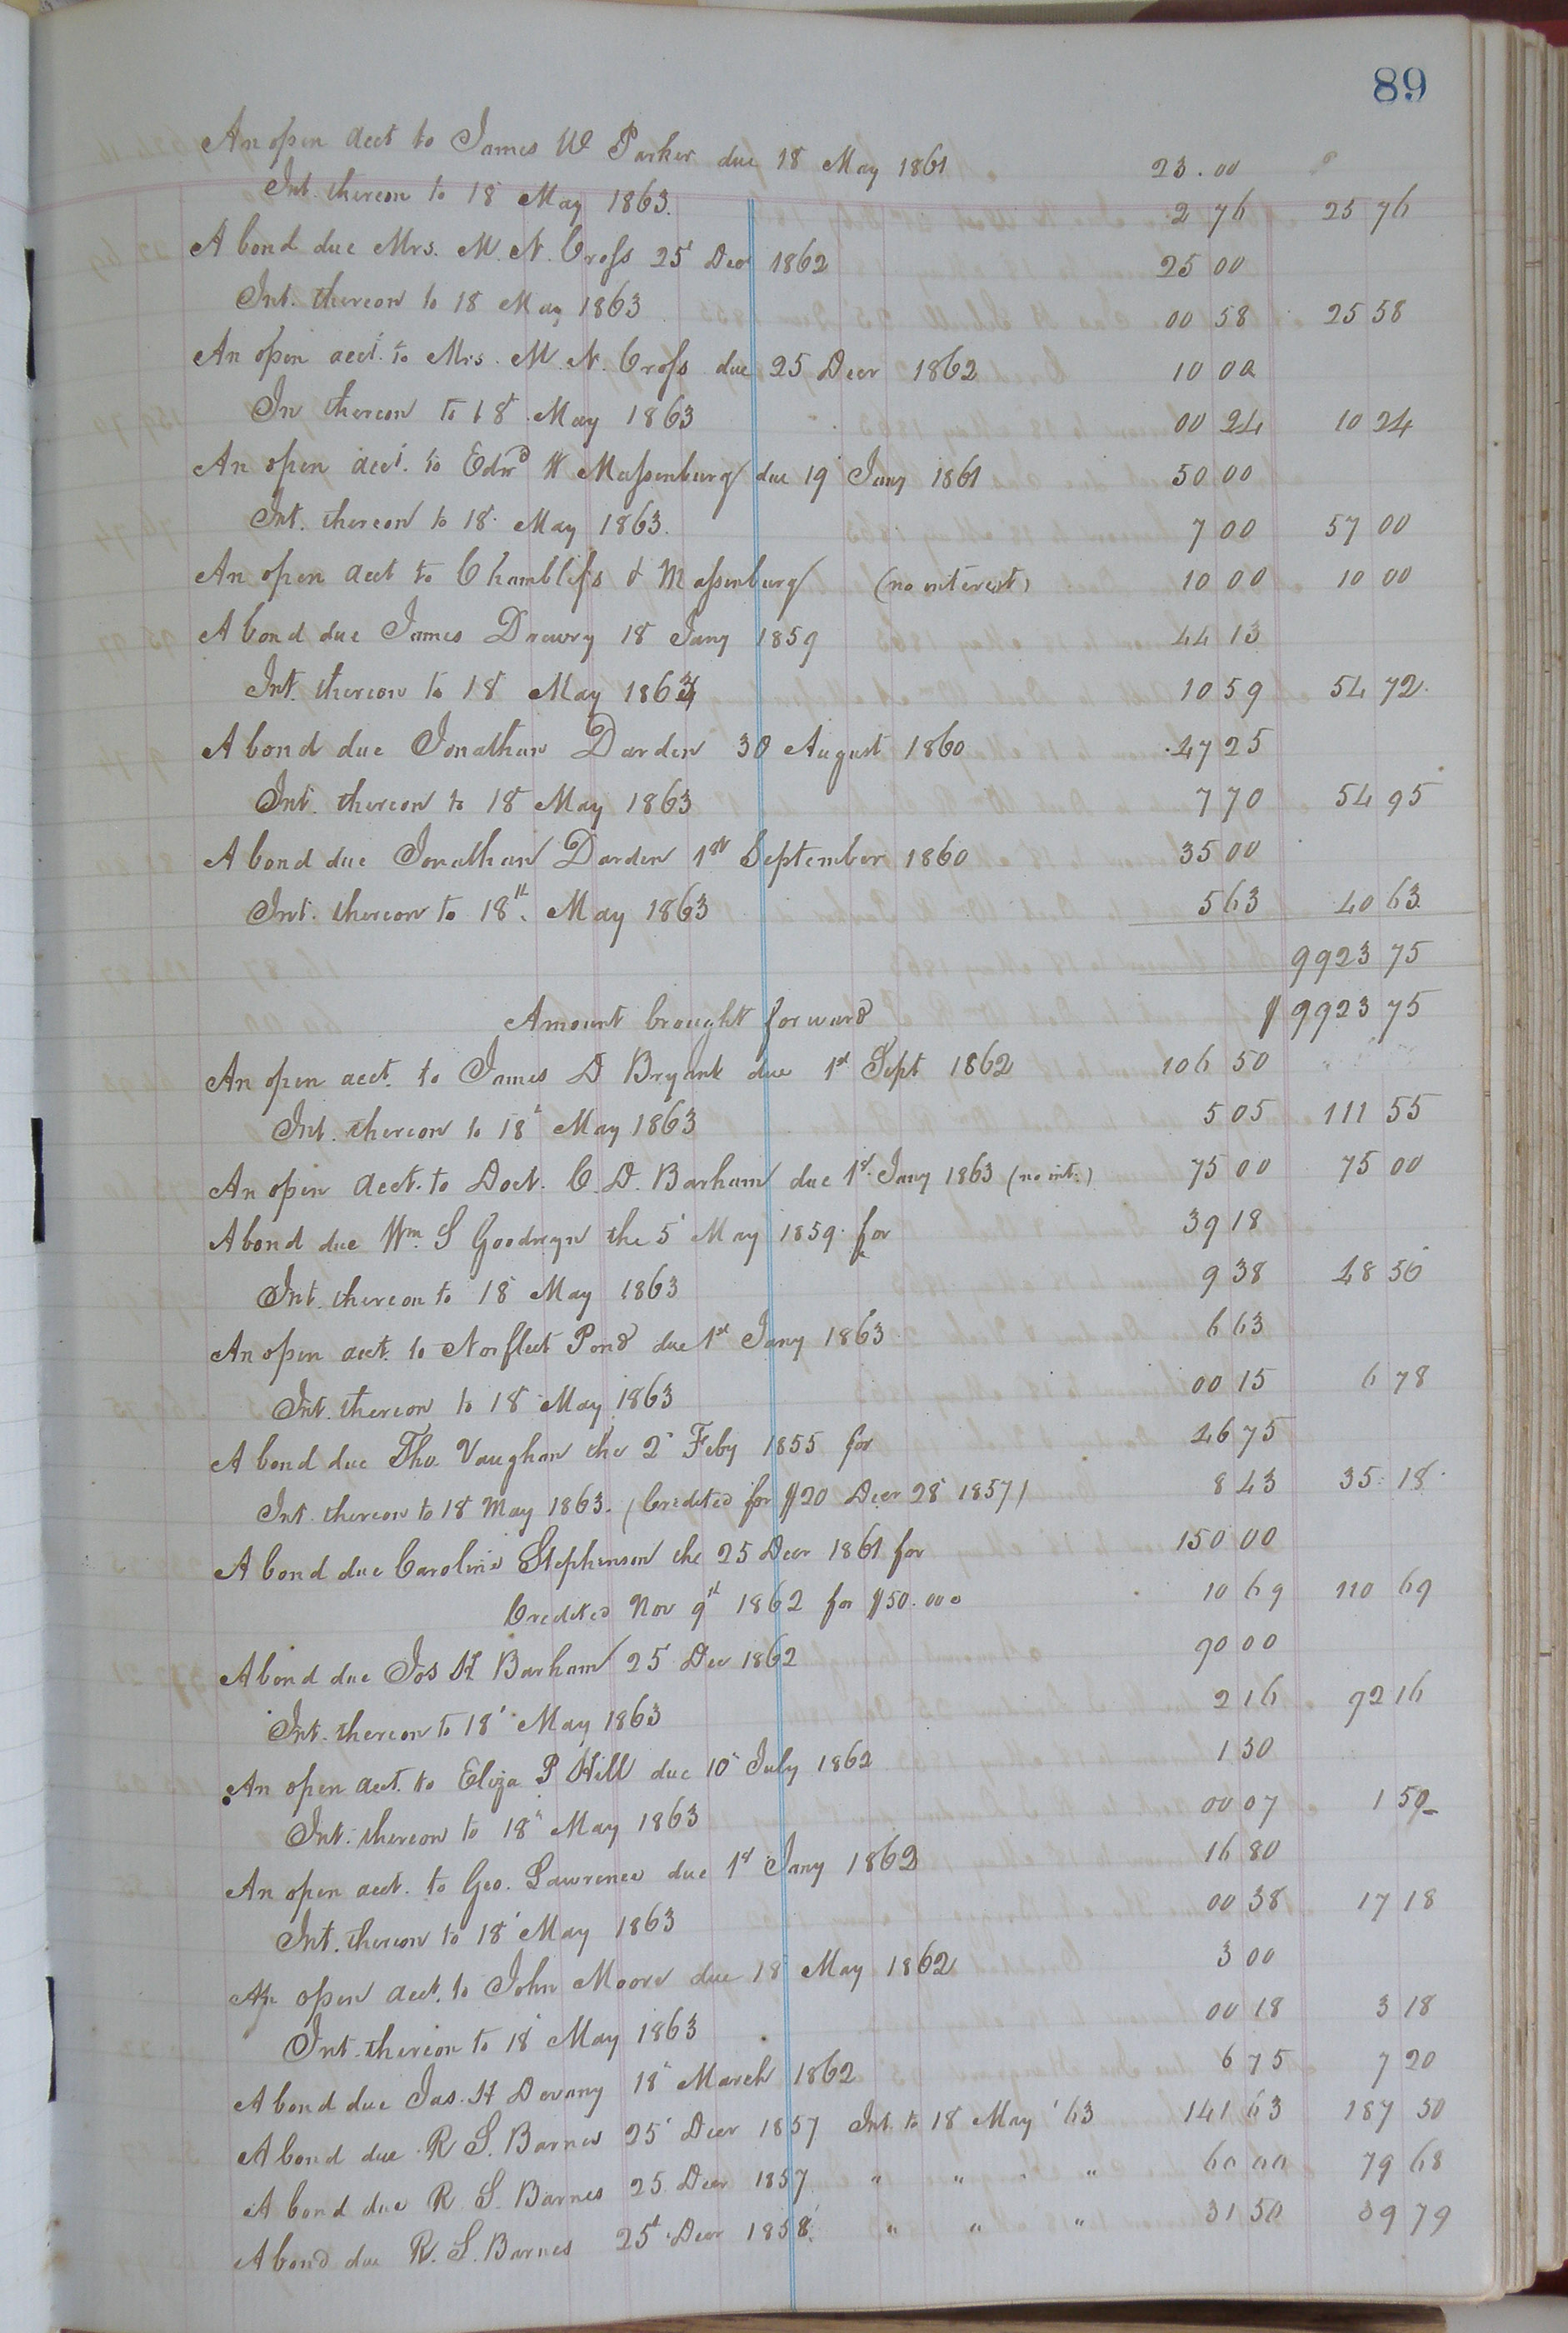 89
An open acct to James W Parker due 18 May 1861 23.00
Int. thereon to 18 May 1863. 2 76 25 76
A bond due Mrs. M. N. Cross 25 Decr 1862 25 00
Int. thereon to 18 May 1863 00 58 25 58
An open acct. to Mrs. M. N. Cross due 25 Decr 1862 10 00
In thereon to 18 May 1863 00 24 10 24
An open acct. to Edwd H Massenburg due 19 Jany 1861 50 00
Int. thereon to 18 May 1863. 7 00 57 00
An open acct to Chambliss & Massenburg (no interest) 10 00 10 00
A bond due James Drewry 18 Jany 1859 44 13
Int. thereon to 18 May 1863 10 59 54 72
A bond due Jonathan Darden 30 August 1860 47 25
Int. thereon to 18 May 1863 7 70 54 95
A bond due Jonathan Darden 1st September 1860 35 00
Int. thereon to 18th. May 1863 5 63 40 63
9923 75
Amount brought forward $ 9923 75
An open acct. to James D Bryant due 1st Sept 1862 106 50
Int. thereon to 18 May 1863 5 05 111 55
An open acct. to Doct. C. D. Barham due 1st Jany 1863 (no int.) 75 00 75 00
A bond due Wm. S Goodwyn the 5 May 1859 for 39 18
Int. thereon to 18 May 1863 9 38 48 56
An open acct. to Norfleet Pond due 1st Jany 1863 6 63
Int. thereon to 18 May 1863 00 15 6 78
A bond due Tho. Vaughan the 2 Feby 1855 for 46 75
Int. thereon to 18 May 1863. (Credited for $20 Decr 28 1857) 8 43 35 18
A bond due Caroline Stephenson the 25 Decr 1861 for 150 00
Credited Nov 9th 1862 for $50.00 10 69 110 69
A bond due Jos H Barham 25 Dec 1862 90 00
Int. thereon to 18 May 1863 2 16 92 16
An open acct. to Eliza P Hill due 10 July 1862 1 50
Int. thereon to 18 May 1863 00 07 1 59
An open acct. to Geo. Lawrence due 1st Jany 1862 16 80
Int. thereon to 18 May 1863 00 38 17 18
An open acct. to John Moore due 18 May 1862 3 00
Int. thereon to 18 May 1863 00 18 3 18
A bond due Jas. H Devany 18 March 1862 6 75 7 20
A bond due R S. Barnes 25 Decr 1857 Int. to 18 May '63 141 63 187 50
A bond due R S. Barnes 25 Decr 1857 " " " " 60 00 79 68
A bond due R. S. Barnes 25 Decr 1858 " " " 31 50 39 79